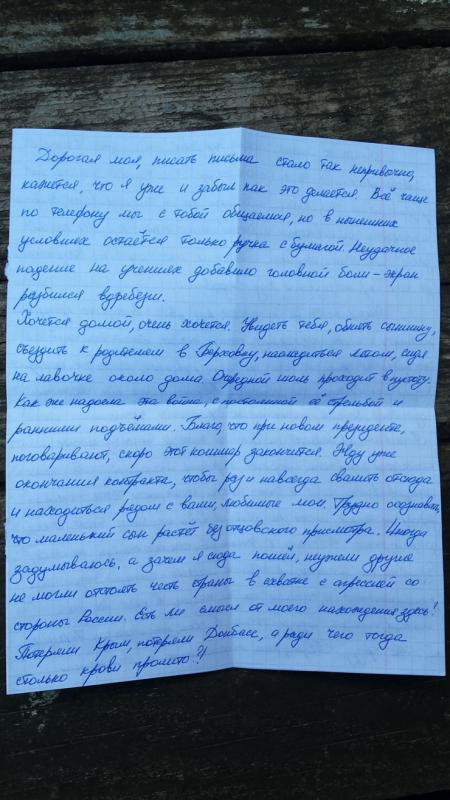 Дорогая моя, писать письма стало так непривычно,
кажется, что я уже и забыл как это делается. Всё чаще
по телефону мы с тобой общаемся, но в нынешних
условиях остаётся только ручка с бумагой. Неудачное
падение на учениях добавило головной боли - экран
разбился вдребезги.
Хочется домой, очень хочется. Увидеть тебя, обнять сынишку,
съездить к родителям в Верховку, насладиться летом, сидя
на лавочке около дома. Очередной июль проходит впустую.
Как же надоела эта война, с постоянной её стрельбой и
ранними подъёмами. Благо, что при новом президенте,
поговаривают, скоро этот кошмар закончится. Жду уже
окончания контракта, чтобы раз и навсегда свалить отсюда
и находиться рядом с вами, любимые мои. Трудно осознавать,
что маленький сын растёт без отцовского присмотра. Иногда
задумываюсь, а зачем я сюда пошёл, неужели другие
не могли отстоять честь страны в схватке с агрессией со
стороны России. Есть ли смысл от моего нахождения здесь!
Потеряли Крым, потеряли Донбасс, а ради чего тогда
столько крови пролито?!